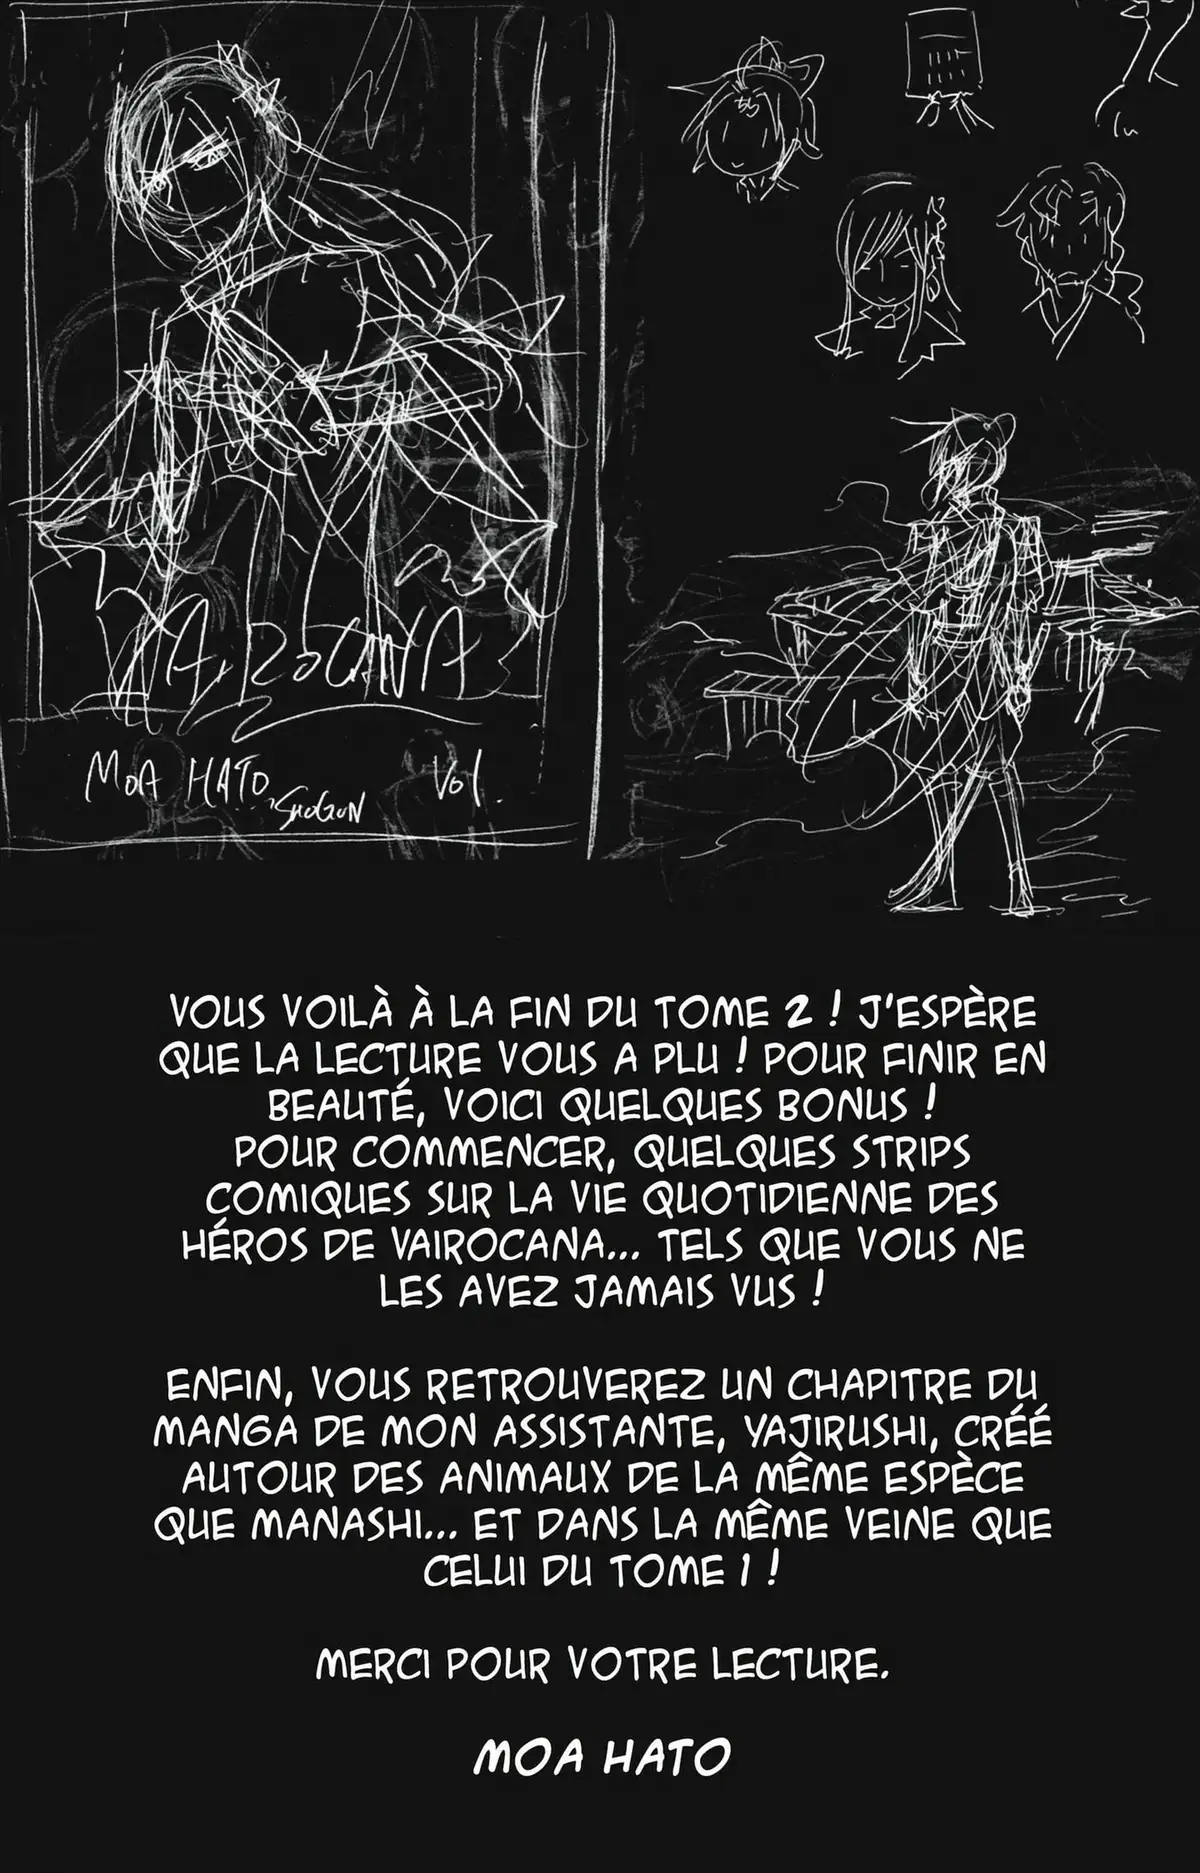 VAIROCANA
MOA HATO
SHOGUN
Vol.
VOUS VOILÀ À LA FIN DU TOME 2 ! J'ESPÈRE
QUE LA LECTURE VOUS A PLU ! POUR FINIR EN
BEAUTÉ, VOICI QUELQUES BONUS !
POUR COMMENCER, QUELQUES STRIPS
COMIQUES SUR LA VIE QUOTIDIENNE DES
HÉROS DE VAIROCANA... TELS QUE VOUS NE
LES AVEZ JAMAIS VUS !
ENFIN, VOUS RETROUVEREZ UN CHAPITRE DU
MANGA DE MON ASSISTANTE, YAJIRUSHI, CRÉÉ
AUTOUR DES ANIMAUX DE LA MÊME ESPÈCE
QUE MANASHI... ET DANS LA MÊME VEINE QUE
CELUI DU TOME 1 !
MERCI POUR VOTRE LECTURE.
MOA HATO